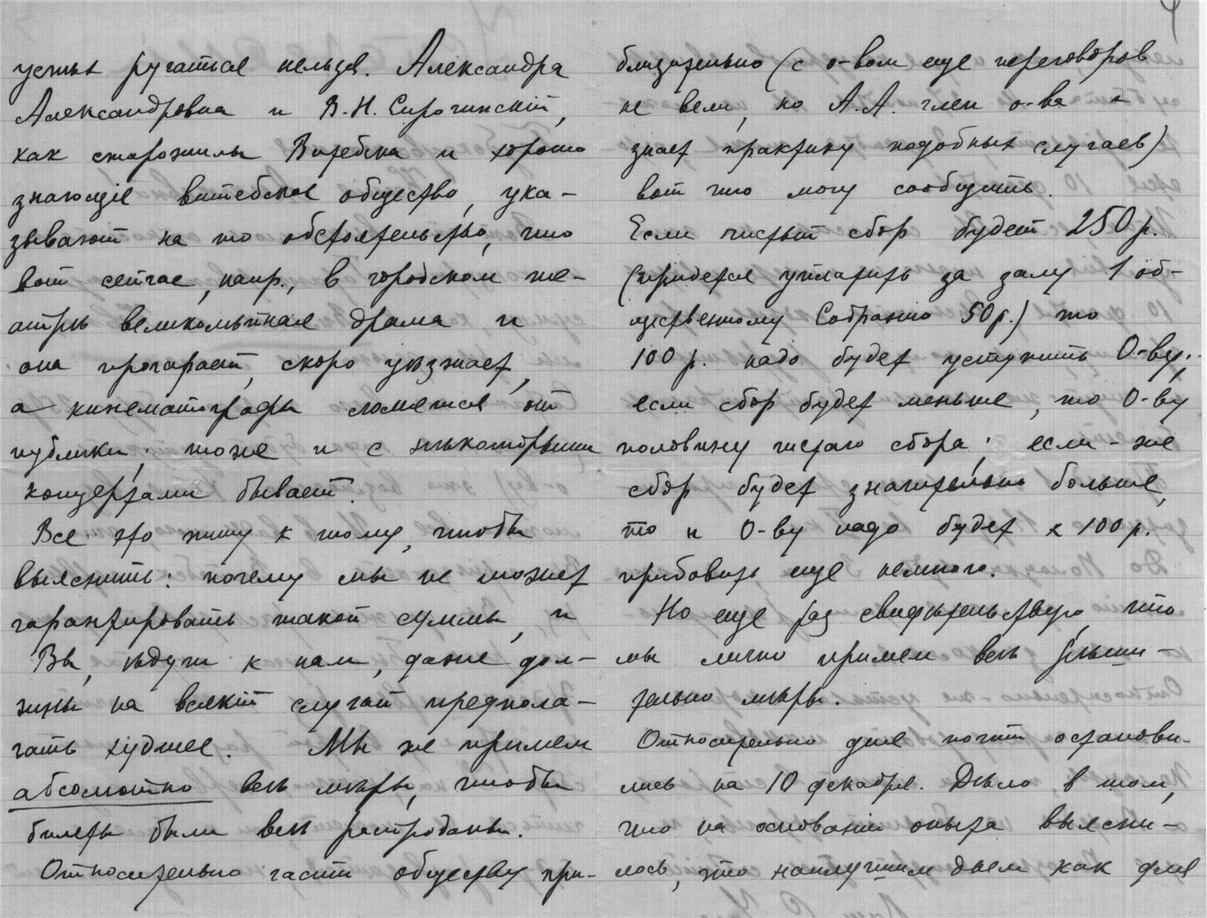 ручаться нельзя. Александра
Александровна и В.Н. Сирочинскій,
как старожилы Витебска и хорошо
знающіе витебское общество, ука-
зывают на то обстоятельство, что
вот сейчас, напр., в городском те-
атрѣ великолѣпная драма и
она прогорает, скоро уѣзжает,
а кинематографы ломятся от
публики; тоже и с нѣкоторыми
концертами бывает.
Все это пишу к тому, чтобы
выяснить: почему мы не может
гарантировать такой суммы, и
Вы, ѣдучи к нам, даже дол-
жны на всякій случай предпола-
гать худшее. Мы же примем
абсолютно всѣ мѣры, чтобы
билеты были всѣ распроданы.
Относительно части обществу при-
близительно (с о-вом еще переговоров
не вели, но А.А. член о-ва и
знает практику подобных случаев)
вот что могу сообщить.
Если чистый сбор будет 250 р.
(придется уплатить за залу 1 об-
щественному Собранію 50 р.) то
100 р. надо будет уступить О-ву;
если сбор будет меньше, то О-ву
половину чистаго сбора; если-же
сбор будет значительно больше,
то и О-ву надо будет к 100 р.
прибавить еще немного.
Но еще раз свидѣтельствую, что
мы лично примем всѣ рѣши-
тельно мѣры.
Относительно дня почти останови-
лись на 10 декабря. Дѣло в том,
что на основаніи опыта выясни-
лось, что наилучшим днем как для